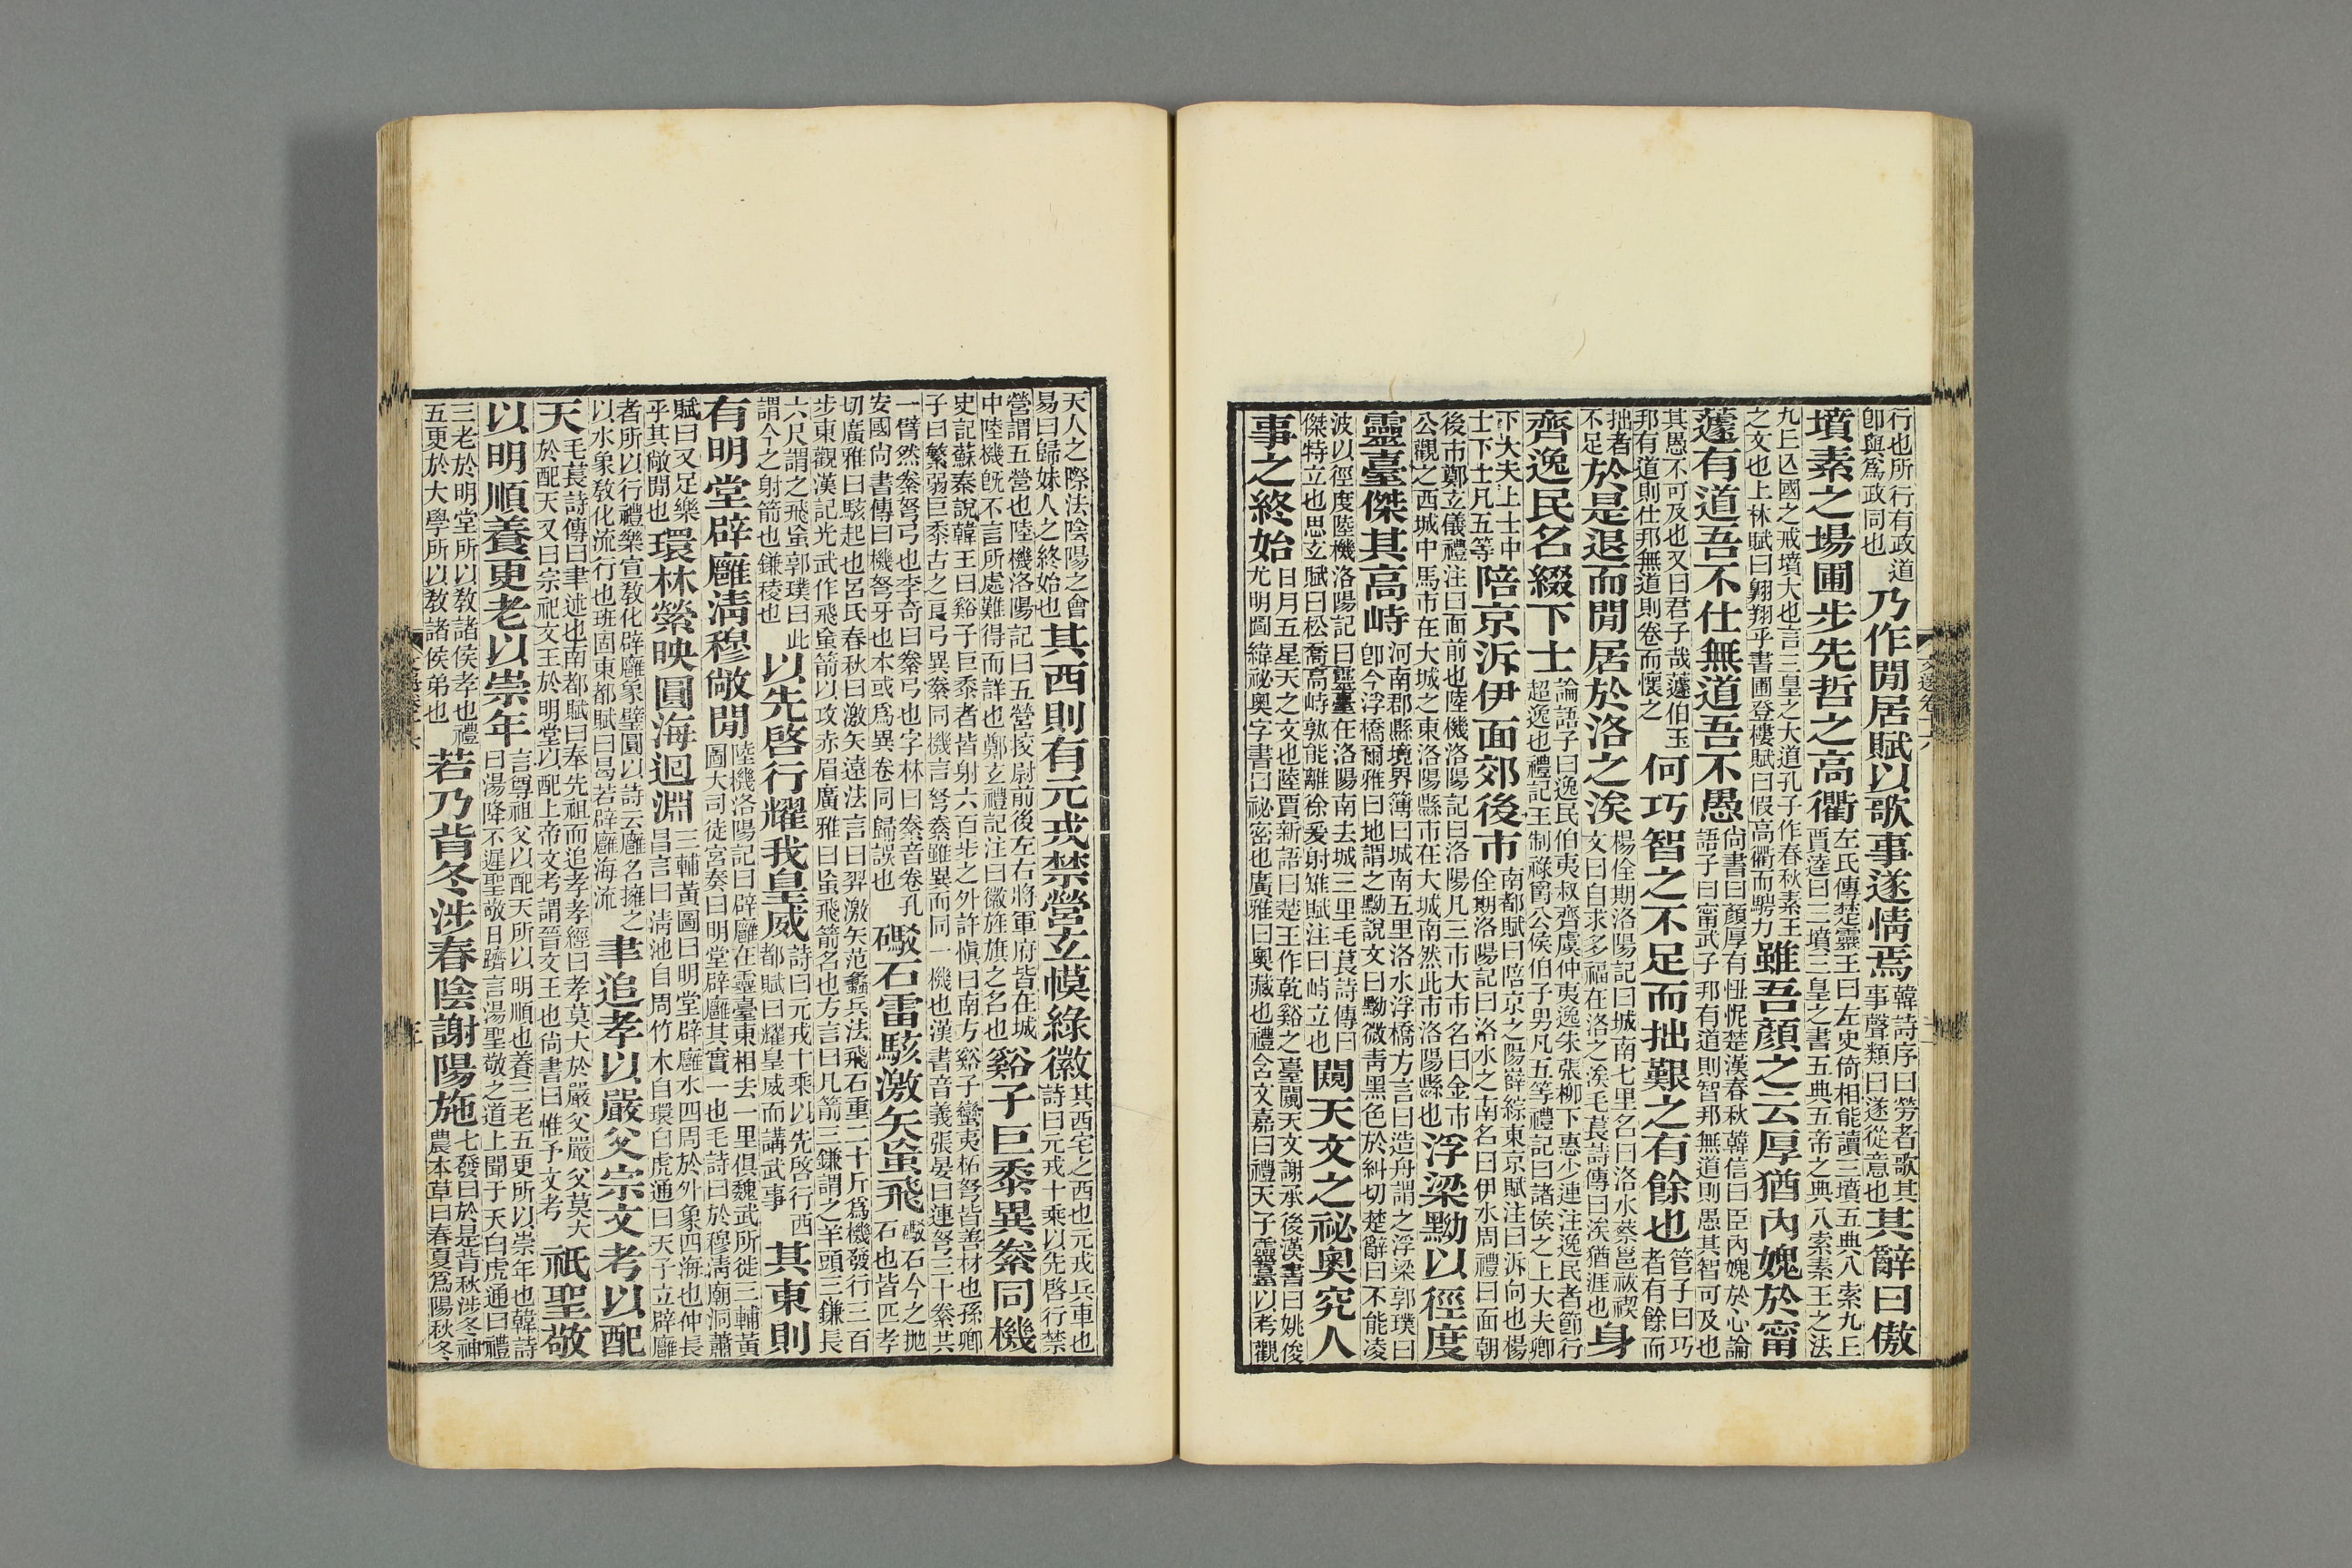 行也所行有政道
卽與爲政同也
乃作閒居賦以歌事遂情焉
韓詩序曰勞者歌其
事聲類曰遂從意也
其辭曰傲
墳素之場圃步先哲之高衢
左氏傳楚靈王曰左史倚相能讀三墳五典八索九丘
賈逵曰三墳三皇之書五典五帝之典八索素王之法
九丘亾國之戒墳大也言三皇之大道孔子作春秋素王
之文也上林賦曰翺翔乎書圃登樓賦曰假高衢而騁力
雖吾顏之云厚猶內媿於甯
蘧有道吾不仕無道吾不愚
尚書曰顏厚有忸怩楚漢春秋韓信曰臣內媿於心論
語子曰甯武子邦有道則智邦無道則愚其智可及也
其愚不可及也又曰君子哉蘧伯玉
邦有道則仕邦無道則卷而懷之
何巧智之不足而拙艱之有餘也
管子曰巧
者有餘而
拙者
不足
於是退而閒居於洛之涘
楊佺期洛陽記曰城南七里名曰洛水蔡邕祓禊
文曰自求多福在洛之涘毛萇詩傳曰涘猶涯也
身
齊逸民名綴下士
論語子曰逸民伯夷叔齊虞仲夷逸朱張柳下惠少連注逸民者節行
超逸也禮記王制祿爵公侯伯子男凡五等禮記曰諸侯之上大夫卿
下大夫上士中
士下士凡五等
陪京泝伊面郊後市
南都賦曰陪京之陽薛綜東京賦注曰泝向也楊
佺期洛陽記曰洛水之南名曰伊水周禮曰面朝
後市鄭玄儀禮注曰面前也陸機洛陽記曰洛陽凡三市大市名曰金市
公觀之西城中馬市在大城之東洛陽縣市在大城南然此市洛陽縣也
浮梁黝以徑度
靈臺傑其高峙
河南郡縣境界簿曰城南五里洛水浮橋方言曰造舟謂之浮梁郭璞曰
卽今浮橋爾雅曰地謂之黝說文曰黝微靑黑色於糾切楚辭曰不能凌
波以徑度陸機洛陽記曰靈臺在洛陽南去城三里毛萇詩傳曰
傑特立也思玄賦曰松喬高峙孰能離徐爰射雉賦注曰峙立也
闚天文之祕奧究人
事之終始
日月五星天之文也陸賈新語曰楚王作乾谿之臺闚天文謝承後漢書曰姚俊
尤明圖緯祕奧字書曰祕密也廣雅曰奧藏也禮含文嘉曰禮天子靈臺以考觀
天人之際法陰陽之會
易曰歸妹人之終始也
其西則有元戎禁營玄幙綠徽
其西宅之西也元戎兵車也
詩曰元戎十乘以先啓行禁
營謂五營也陸機洛陽記曰五營挍尉前後左右將軍府皆在城
中陸機旣不言所處難得而詳也鄭玄禮記注曰徽旌旗之名也
谿子巨黍異絭同機
史記蘇秦說韓王曰谿子巨黍者皆射六百步之外許愼曰南方谿子蠻夷柘弩皆善材也孫卿
子曰繁弱巨黍古之良弓異絭同機言弩絭雖異而同一機也漢書音義張晏曰連弩三十絭共
一臂然絭弩弓也李奇曰絭弓也字林曰絭音卷孔
安國尚書傳曰機弩牙也本或爲異卷同歸誤也
礮石雷駭激矢蝱飛
礮石今之抛
石也皆匹孝
切廣雅曰駭起也呂氏春秋曰激矢遠法言曰羿激矢范蠡兵法飛石重二十斤爲機發行三百
步東觀漢記光武作飛蝱箭以攻赤眉廣雅曰蝱飛箭名也方言曰凡箭三鎌謂之羊頭三鎌長
六尺謂之飛蝱郭璞曰此
謂今之射箭也鎌稜也
以先啓行耀我皇威
詩曰元戎十乘以先啓行西
都賦曰耀皇威而講武事
其東則
有明堂辟廱淸穆敞閒
陸機洛陽記曰辟廱在靈臺東相去一里俱魏武所徙三輔黃
圖大司徒宮奏曰明堂辟廱其實一也毛詩曰於穆淸廟洞蕭
賦曰又足樂
乎其敞閒也
環林縈映圓海迴淵
三輔黃圖曰明堂辟廱水四周於外象四海也仲長
昌言曰淸池自周竹木自環白虎通曰天子立辟廱
者所以行禮樂宣敎化辟廱象璧圓以詩云廱名擁之
以水象敎化流行也班固東都賦曰曷若辟廱海流
聿追孝以嚴父宗文考以配
天
毛萇詩傳曰聿述也南都賦曰奉先祖而追孝孝經曰孝莫大於嚴父嚴父莫大
於配天又曰宗祀文王於明堂以配上帝文考謂晉文王也尚書曰惟予文考
祇聖敬
以明順養更老以崇年
言尊祖父以配天所以明順也養三老五更所以崇年也韓詩
曰湯降不遲聖敬日躋言湯聖敬之道上聞于天白虎通曰禮
三老於明堂所以敎諸侯孝也禮
五更於大學所以敎諸侯弟也
若乃背冬涉春陰謝陽施
七發曰於是背秋涉冬神
農本草曰春夏爲陽秋冬